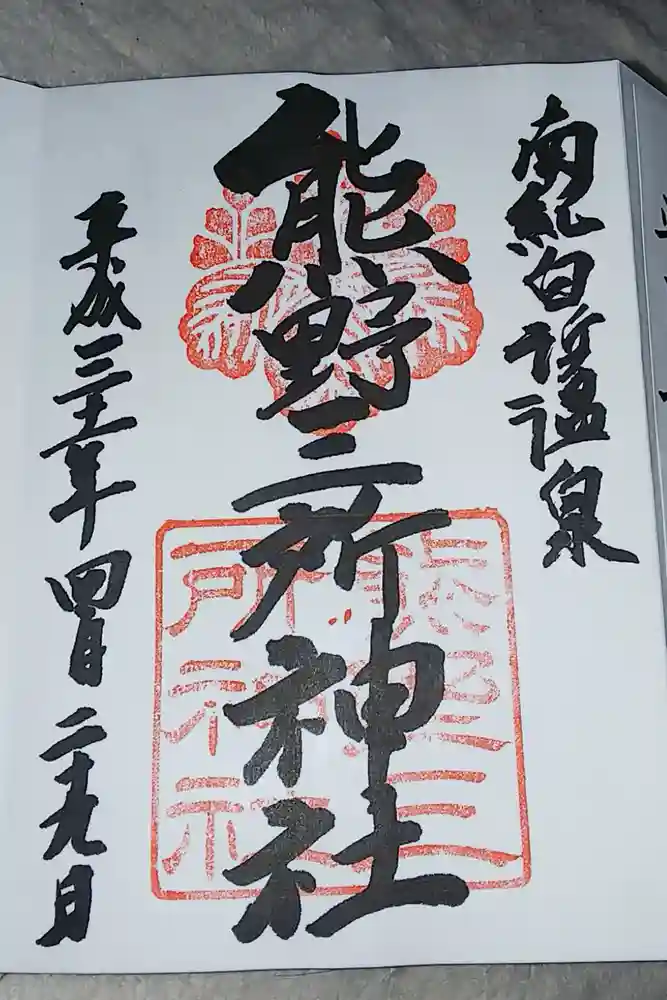 南紀白浜温泉
熊野三所神社
熊野三所神社
平成三十一年四月二十九日